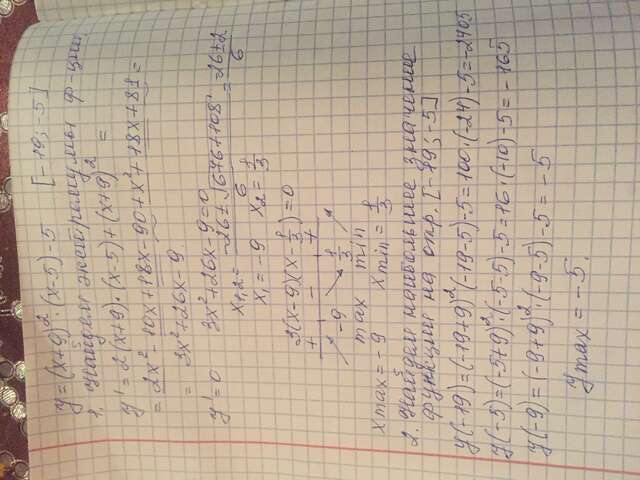 y=(x+9)²·(x-5)-5   [-19; -5]
1. Найдём экстремумы ф-ции
y'=2(x+9)·(x-5)+(x+9)² =
=2x²-10x+18x-90+x²+18x+81=
= 3x²+26x-9
y'=0   3x²+26x-9=0
x₁,₂= (-26±√(676+108))/6 = (-26±2)/6
x₁=-9   x₂=1/3
3(x-9)(x-1/3)=0
+ - +
-9   1/3
max   min
xmax=-9   xmin=1/3
2. Найдём наибольшее значение
функции на отр. [-19; -5]
y(-19)=(-19+9)²·(-19-5)-5=100·(-24)-5=-2405
y(-5)=(-5+9)²·(-5-5)-5=16·(-10)-5=-165
y(-9)=(-9+9)²·(-9-5)-5=-5
ymax=-5.